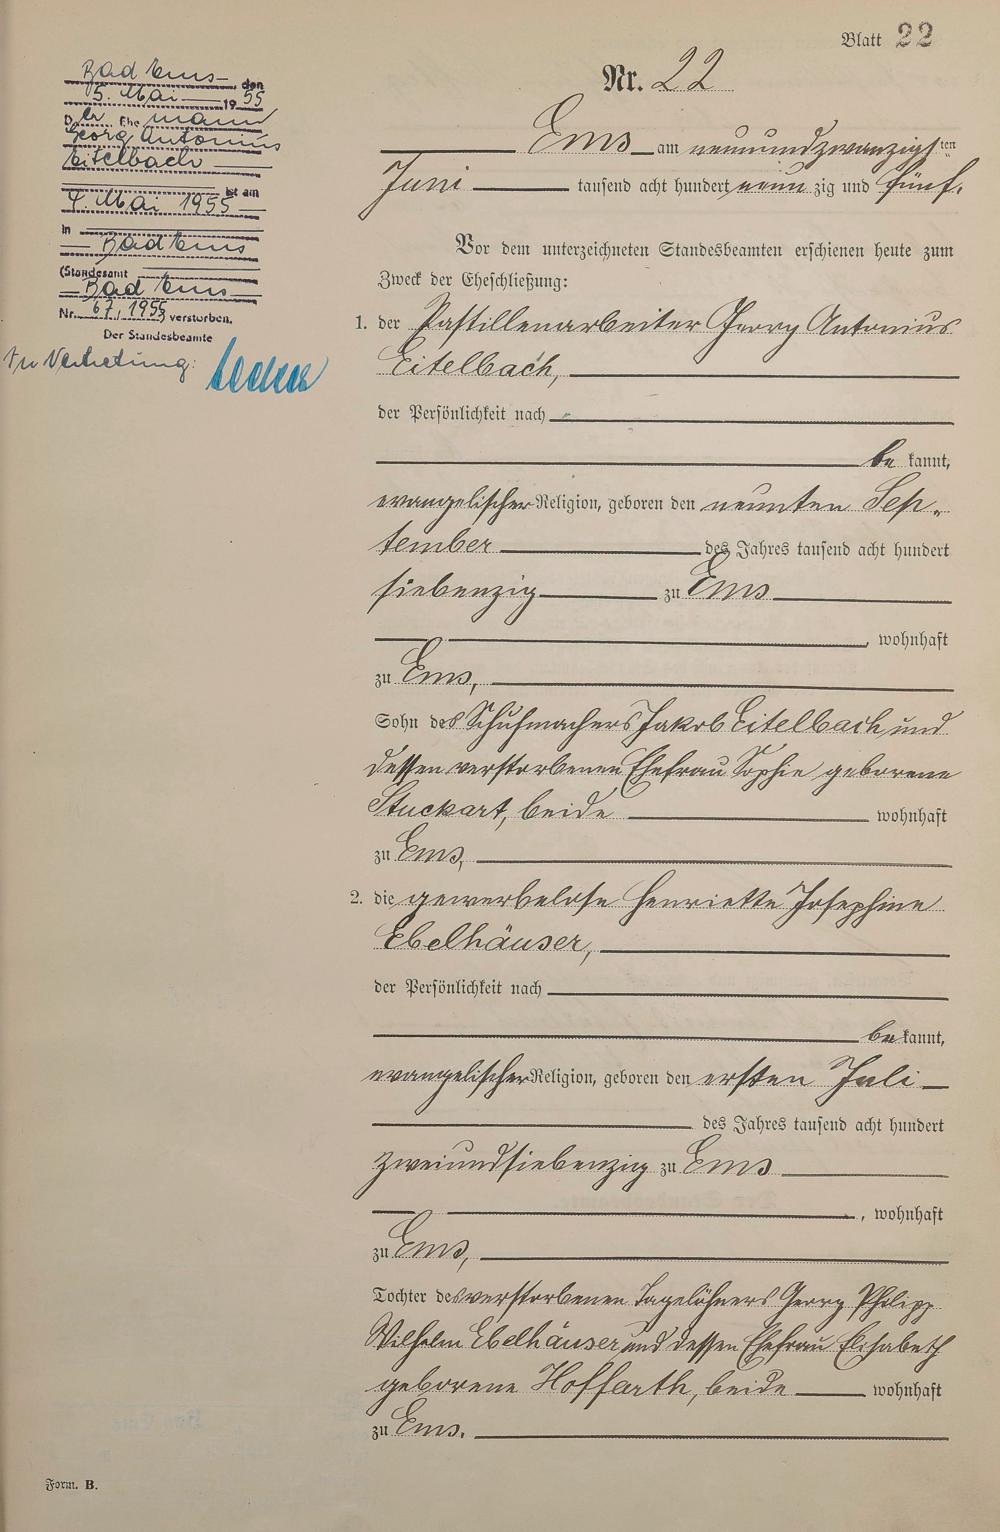 Blatt 22
Nr. 22
Ems am neunundzwanzigsten
Juni tausend acht hundert neunzig und fünf.
Vor dem unterzeichneten Standesbeamten erschienen heute zum
Zweck der Eheschließung:
1. der Pastillenarbeiter Georg Antonius
Eitelbach,
der Persönlichkeit nach
be kannt,
evangelischer Religion, geboren den neunten Sep-
tember des Jahres tausend acht hundert
siebenzig zu Ems
, wohnhaft
zu Ems,
Sohn des Schuhmachers Jakob Eitelbach und
dessen verstorbenen Ehefrau Sophie geborene
Stuckart, beide wohnhaft
zu Ems,
2. die gewerbelose Henriette Josephine
Ebelhäuser,
der Persönlichkeit nach
be kannt,
evangelischer Religion, geboren den ersten Juli
des Jahres tausend acht hundert
zweiundsiebenzig zu Ems
, wohnhaft
zu Ems,
Tochter des verstorbenen Tagelöhners Georg Philipp
Wilhelm Ebelhäuser und dessen Ehefrau Elisabeth
geborene Hoffarth, beide wohnhaft
zu Ems.
Bad Ems, den
5. Mai 1955
Der Ehemann
Georg Antonius
Eitelbach
ist am
4. Mai 1955
in
Bad Ems
(Standesamt
Bad Ems
Nr. 67/1955) verstorben.
Der Standesbeamte
In Vertretung:
Form. B.